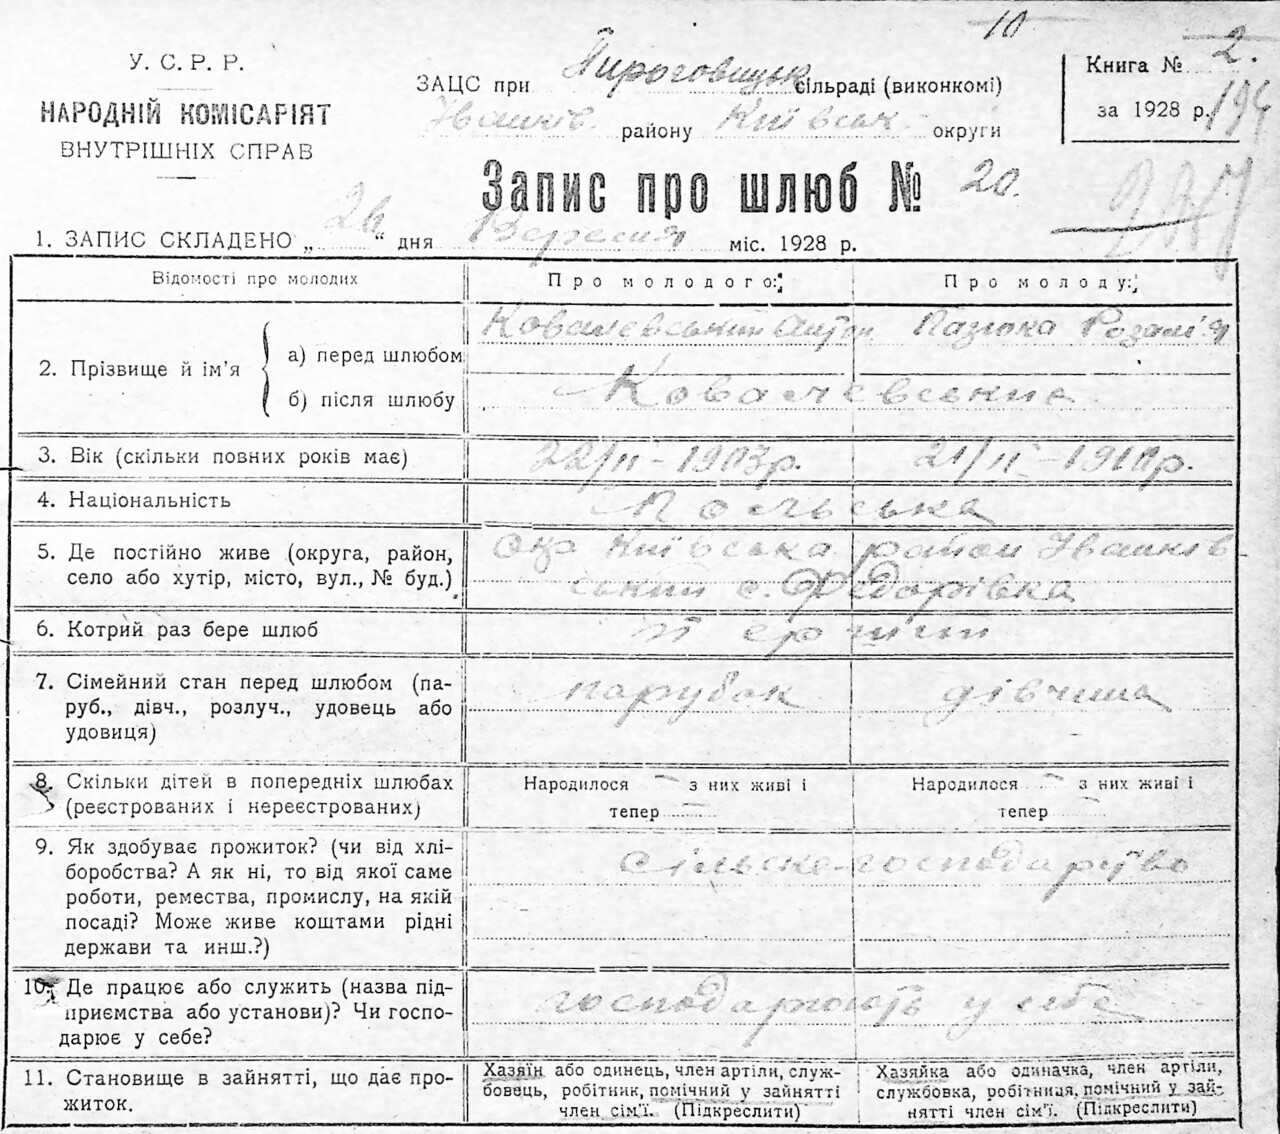 10
У. С. Р. Р.
НАРОДНІЙ КОМІСАРІЯТ
ВНУТРІШНІХ СПРАВ
ЗАЦС при Пироговицьк сільраді (виконкомі)
Іванків. району Київськ округи
Книга № 2.
за 1928 р. 194
Запис про шлюб № 20.
1. ЗАПИС СКЛАДЕНО „ 26 “ дня Вересня міс. 1928 р.
Відомості про молодих
Про молодого:
Про молоду:
2. Прізвище й ім’я
а) перед шлюбом
Ковалевський Антон
Пазюка Розалія
б) після шлюбу
Ковалевські
3. Вік (скільки повних років має)
22/II – 1903р.
21/II – 1910р.
4. Національність
Польська
5. Де постійно живе (округа, район,
село або хутір, місто, вул., № буд.)
Окр Київська район Іванків-
ський с. Федорівка
6. Котрий раз бере шлюб
Перший
7. Сімейний стан перед шлюбом (па-
руб., дівч., розлуч., удовець або
удовиця)
парубок
дівчина
8. Скільки дітей в попередніх шлюбах
(реєстрованих і нереєстрованих)
Народилося – з них живі і
тепер
Народилося – з них живі і
тепер
9. Як здобуває прожиток? (чи від хлі-
боробства? А як ні, то від якої саме
роботи, ремества, промислу, на якій
посаді? Може живе коштами рідні
держави та инш.?)
сільске-господарство
10. Де працює або служить (назва під-
приємства або установи)? Чи госпо-
дарює у себе?
господарюють у себе
11. Становище в зайнятті, що дає про-
житок.
Хазяїн або одинець, член артіли, служ-
бовець, робітник, помічний у зайнятті
член сім’ї. (Підкреслити)
Хазяйка або одиначка, член артіли,
службовка, робітниця, помічний у зай-
нятті член сім’ї. (Підкреслити)